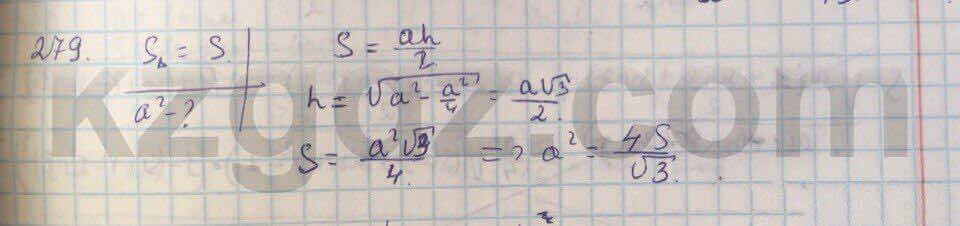 279. Sₙ = S. S = ah/2
a² - ? h = √(a² - a²/4) = a√3/2.
S = a²√3/4. => a² = 4S/√3.
kzgdz.com